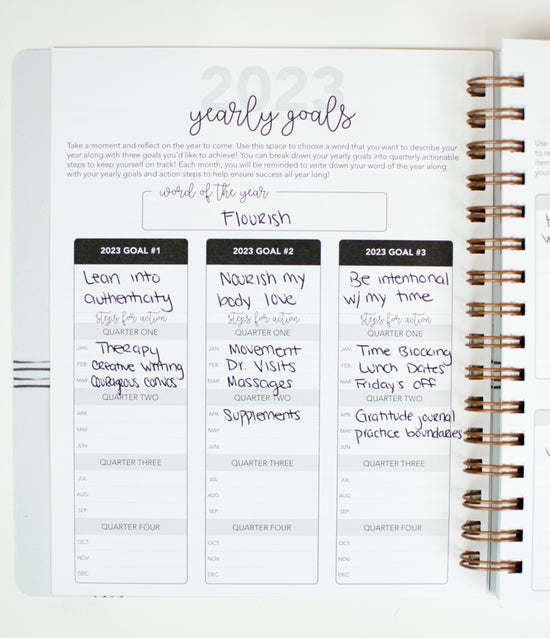 2023
yearly goals
Take a moment and reflect on the year to come. Use this space to choose a word that you want to describe your
year along with three goals you'd like to achieve! You can break down your yearly goals into quarterly actionable
steps to keep yourself on track! Each month, you will be reminded to write down your word of the year along
with your yearly goals and action steps to help ensure success all year long!
word of the year
Flourish
2023 GOAL #1
Lean into
authenticity
steps for action
QUARTER ONE
JAN: Therapy
FEB: creative writing
MAR: Courageous convos
QUARTER TWO
APR:
MAY:
JUN:
QUARTER THREE
JUL:
AUG:
SEP:
QUARTER FOUR
OCT:
NOV:
DEC:
2023 GOAL #2
Nourish my
body love
steps for action
QUARTER ONE
JAN: Movement
FEB: Dr. Visits
MAR: Massages
QUARTER TWO
APR: Supplements
MAY:
JUN:
QUARTER THREE
JUL:
AUG:
SEP:
QUARTER FOUR
OCT:
NOV:
DEC:
2023 GOAL #3
Be intentional
w/ my time
steps for action
QUARTER ONE
JAN: Time Blocking
FEB: Lunch Dates
MAR: Fridays off
QUARTER TWO
APR: Gratitude journal
MAY: practice boundaries
JUN:
QUARTER THREE
JUL:
AUG:
SEP:
QUARTER FOUR
OCT:
NOV:
DEC: